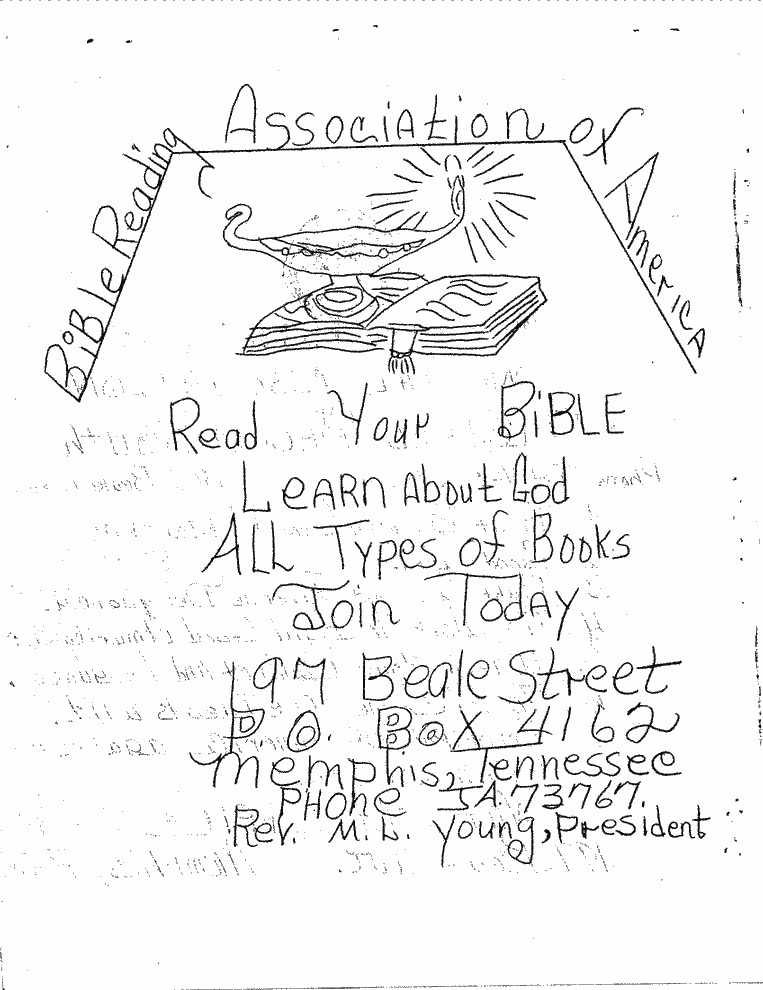 Bible Reading Association of America
Read Your BiBLE
LeARN About God
ALL Types of Books
Join TodAy
197 Beale Street
P.O. Box 4162
Memphis, Tennessee
PHone JA.73767.
Rev. M. L. Young, President